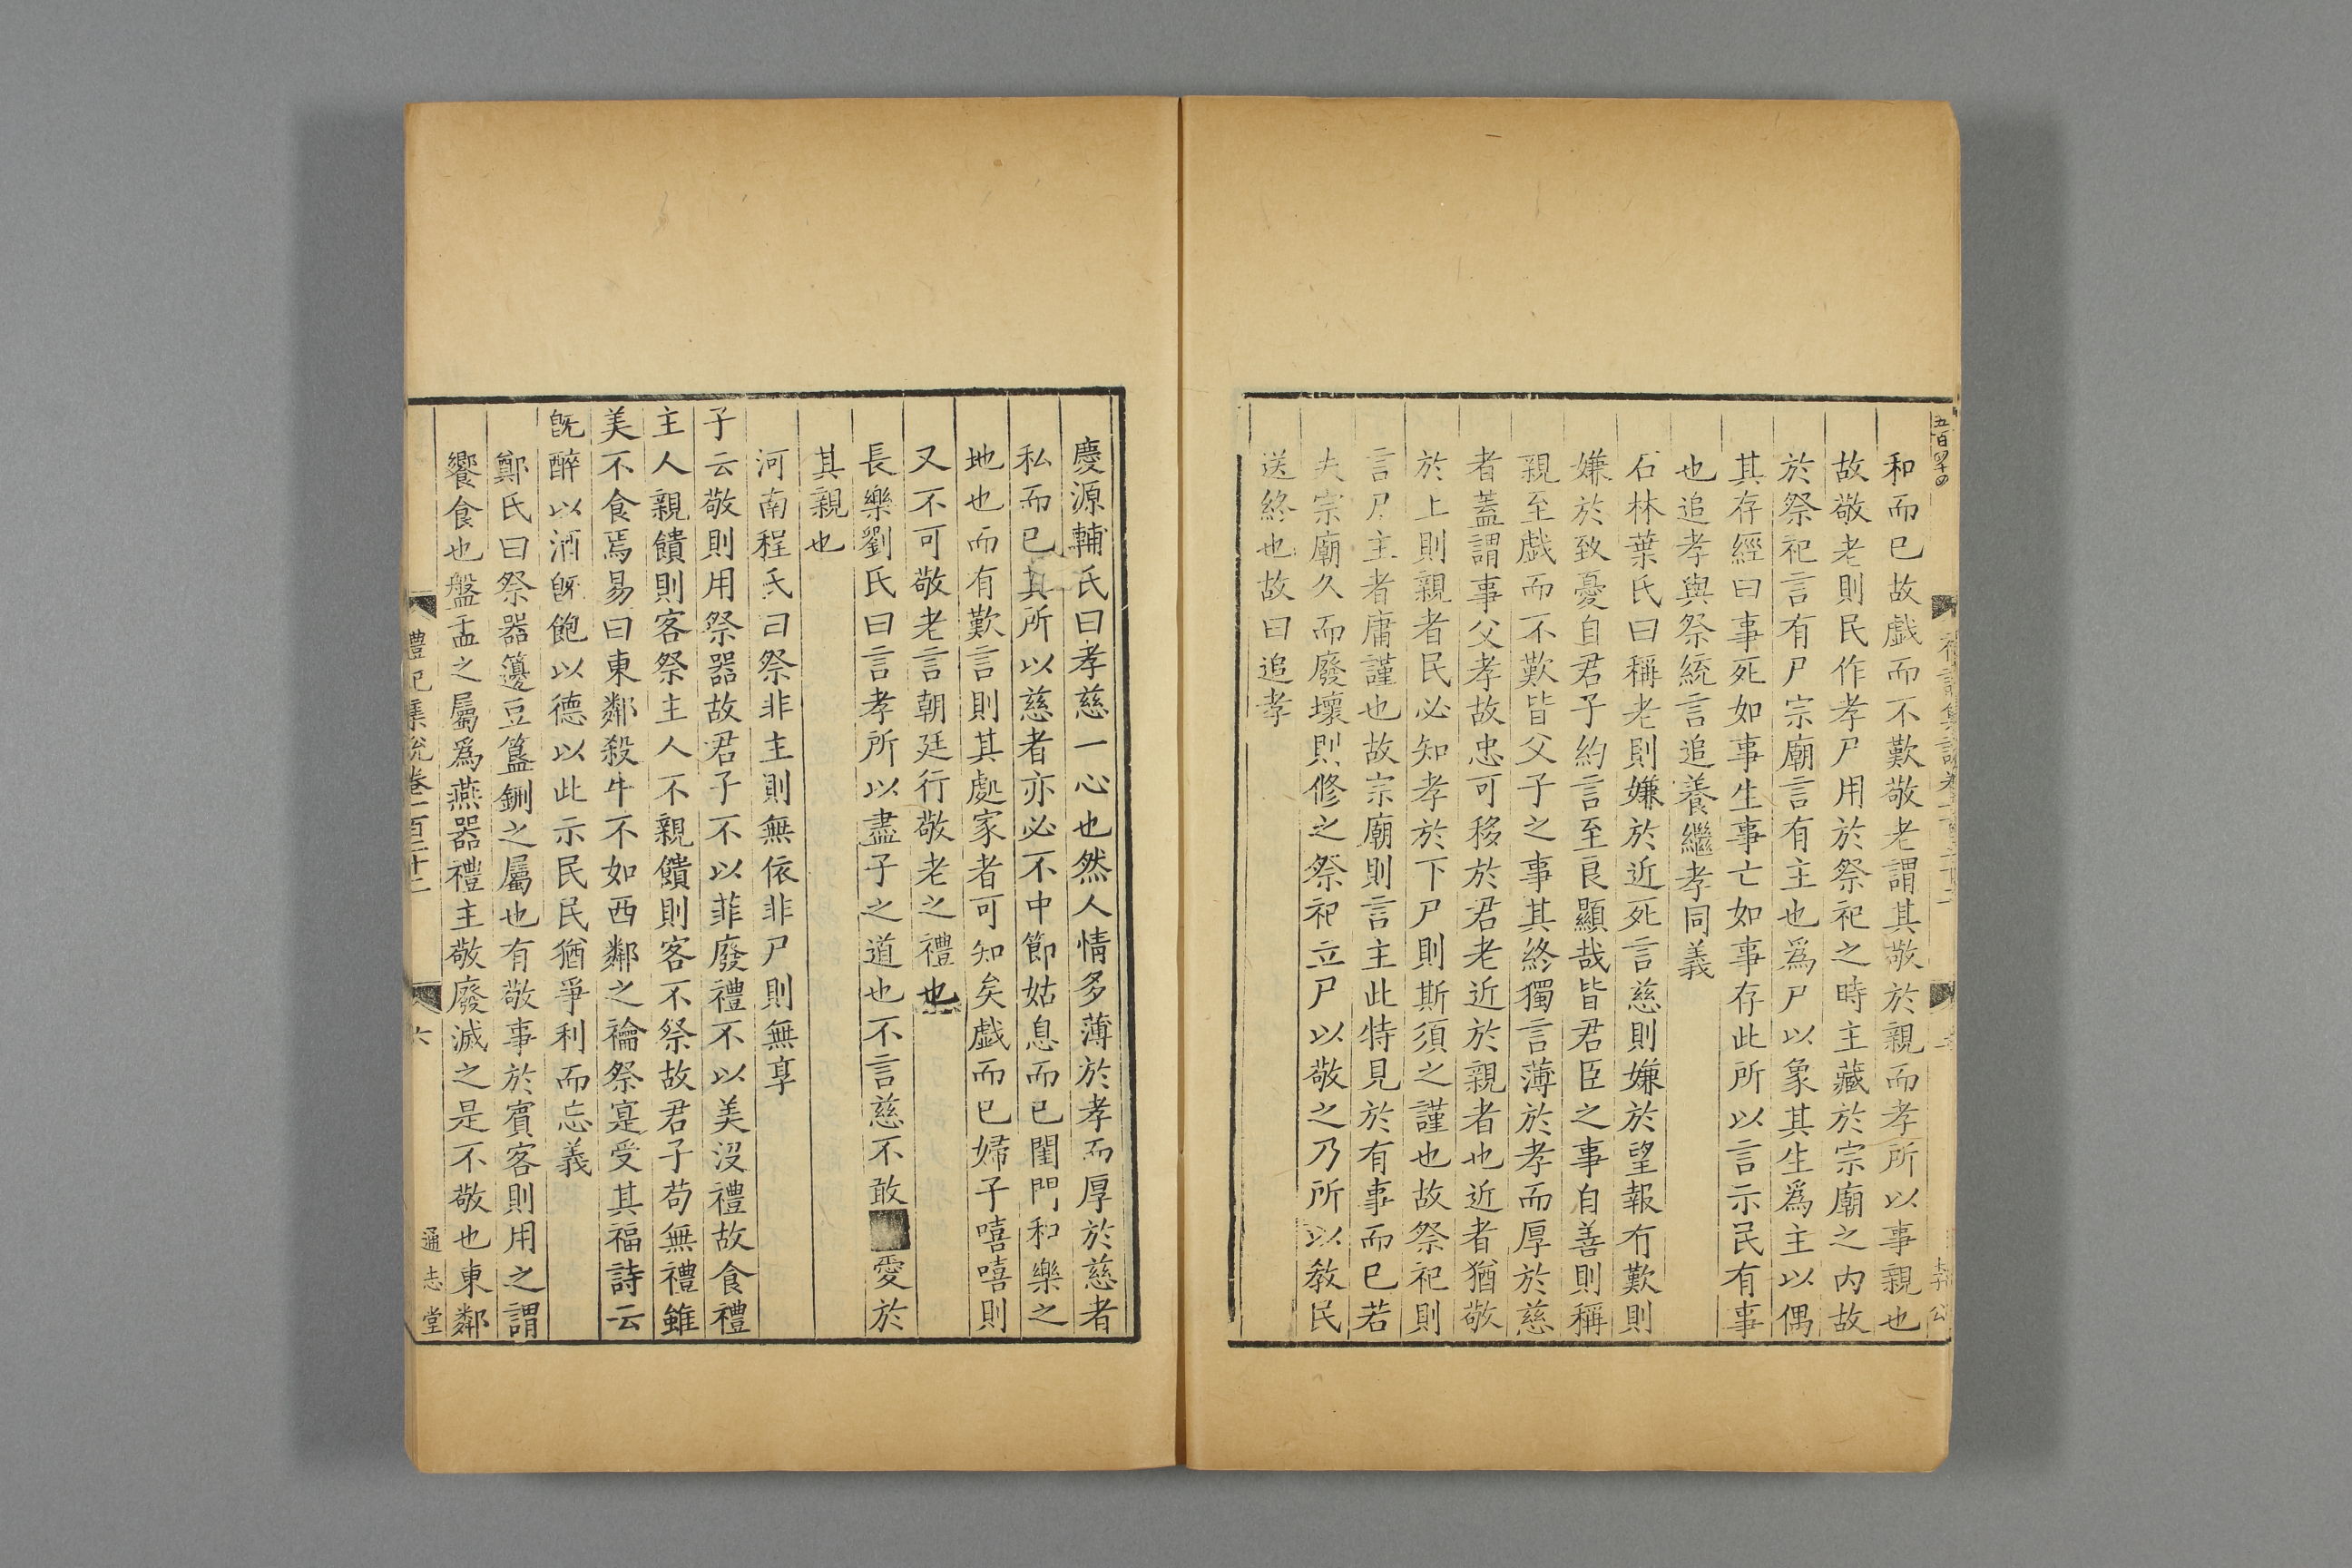 和而已故戯而不歎敬老謂其敬於親而孝所以事親也
故敬老則民作孝尸用於祭祀之時主藏於宗廟之内故
於祭祀言有尸宗廟言有主也爲尸以象其生爲主以偶
其存經曰事死如事生事亡如事存此所以言示民有事
也追孝與祭統言追養繼孝同義
石林葉氏曰稱老則嫌於近死言慈則嫌於望報冇歎則
嫌於致憂自君子約言至良顯哉皆君臣之事自善則稱
親至戯而不歎皆父子之事其終獨言薄於孝而厚於慈
者蓋謂事父孝故忠可移於君老近於親者也近者猶敬
於上則親者民必知孝於下尸則斯須之謹也故祭祀則
言尸主者庸謹也故宗廟則言主此特見於有事而已若
夫宗廟久而廢壞則修之祭祀立尸以敬之乃所以教民
送終也故曰追孝
慶源輔氏曰孝慈一心也然人情多薄於孝而厚於慈者
私而已其所以慈者亦必不中節姑息而已閨門和樂之
地也而有歎言則其處家者可知矣戯而已婦子嘻嘻則
又不可敬老言朝廷行敬老之禮也
長樂劉氏曰言孝所以盡子之道也不言慈不敢愛於
其親也
河南程氏曰祭非主則無依非尸則無享
子云敬則用祭器故君子不以菲廢禮不以美沒禮故食禮
主人親饋則客祭主人不親饋則客不祭故君子苟無禮雖
美不食焉易曰東鄰殺牛不如西鄰之禴祭寔受其福詩云
旣醉以酒旣飽以德以此示民民猶爭利而忘義
鄭氏曰祭器籩豆簋鉶之屬也有敬事於賓客則用之謂
饗食也盤盂之屬爲燕器禮主敬廢滅之是不敬也東鄰
禮記集說卷一百三十二
六
通志堂